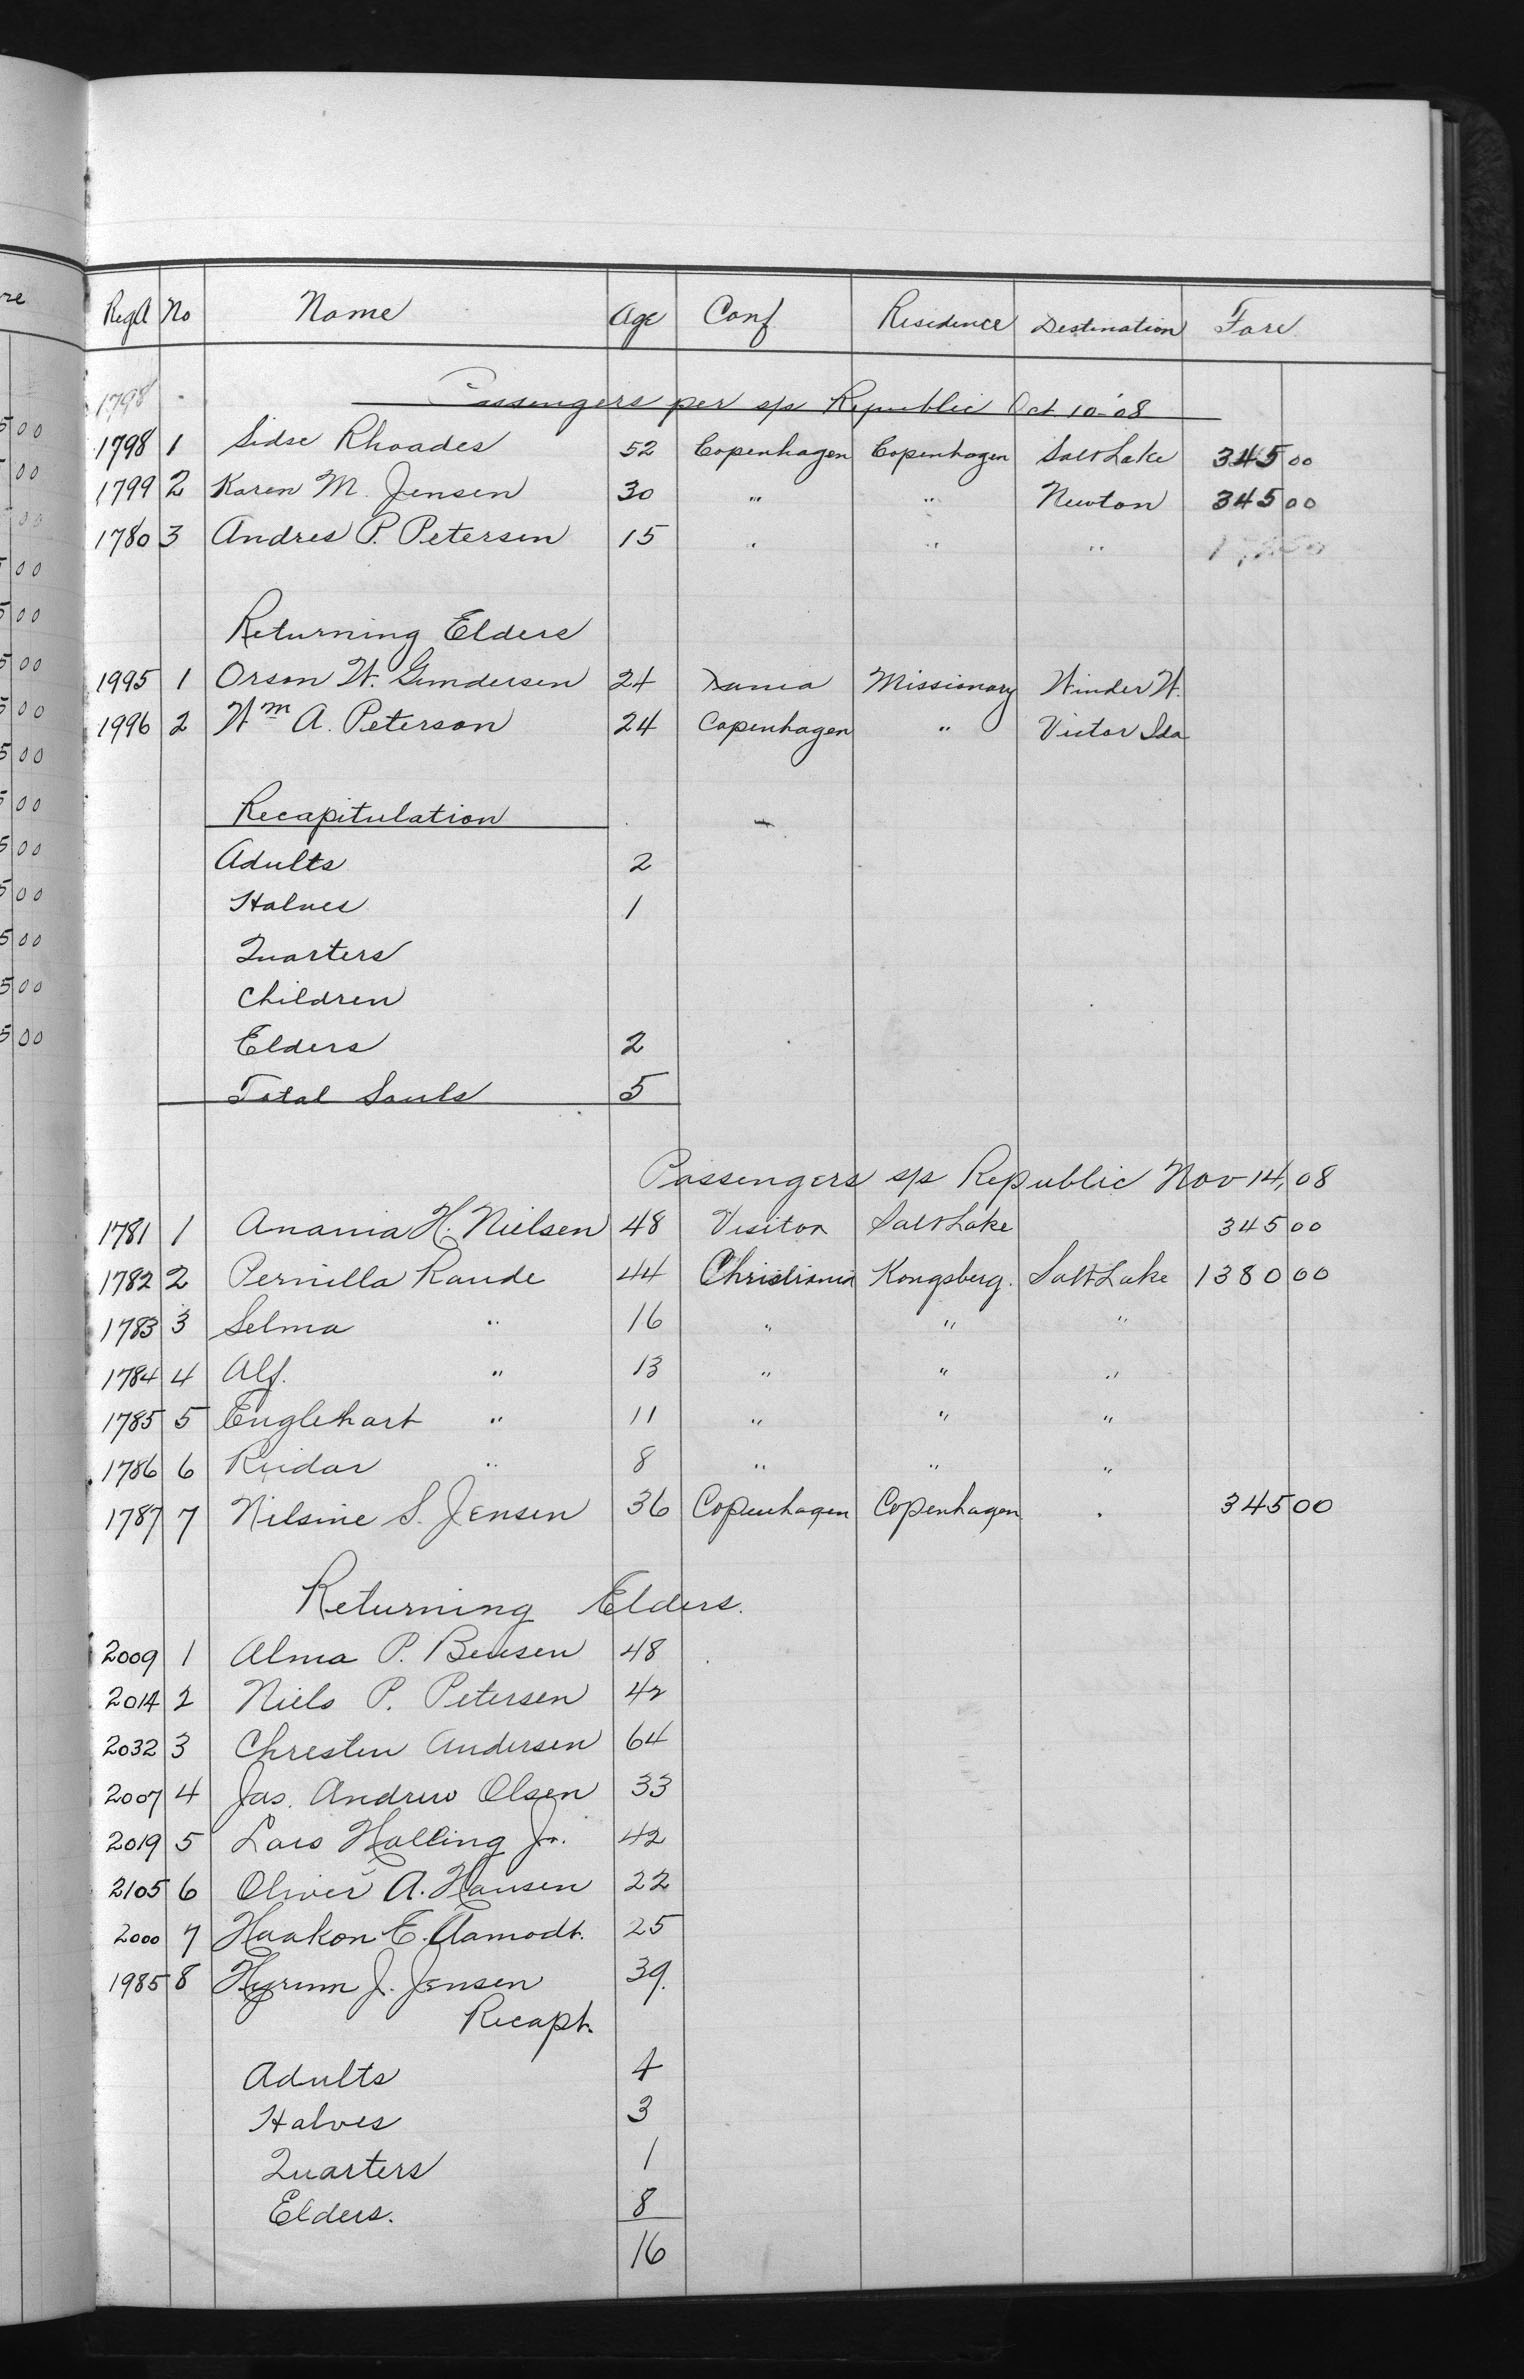 Reg# No Name Age Conf Residence Destination Fare
1798
Passengers per s/s Republic Oct 10-'08
1798 1 Sidse Rhoades 52 Copenhagen Copenhagen Salt Lake 345 00
1799 2 Karen M. Jensen 30 " " Newton 345 00
1780 3 Andres P. Petersen 15 " " "
Returning Elders
1995 1 Orson W. Gundersen 24 Dania Missionary Winder W.
1996 2 Wm A. Peterson 24 Copenhagen " Victor Ida
Recapitulation
Adults 2
Halves 1
Quarters
Children
Elders 2
Total Souls 5
Passengers s/s Republic Nov 14, 08
1781 1 Anania H. Nielsen 48 Visitor Salt Lake 345 00
1782 2 Pernilla Raude 44 Christiania Kongsberg. Salt Lake 1380 00
1783 3 Selma " 16 " " "
1784 4 Alf. " 13 " " "
1785 5 Englehart " 11 " " "
1786 6 Reidar " 8 " " "
1787 7 Nilsine S. Jensen 36 Copenhagen Copenhagen " 345 00
Returning Elders.
2009 1 Alma P. Bensen 48
2014 2 Niels P. Petersen 42
2032 3 Chresten Andersen 64
2007 4 Jas. Andrew Olsen 33
2019 5 Lars Halling Jr. 42
2105 6 Oliver A. Hansen 22
2000 7 Haakon E. Aamodt. 25
1985 8 Hyrum J. Jensen 39.
Recapt.
Adults 4
Halves 3
Quarters 1
Elders. 8
16